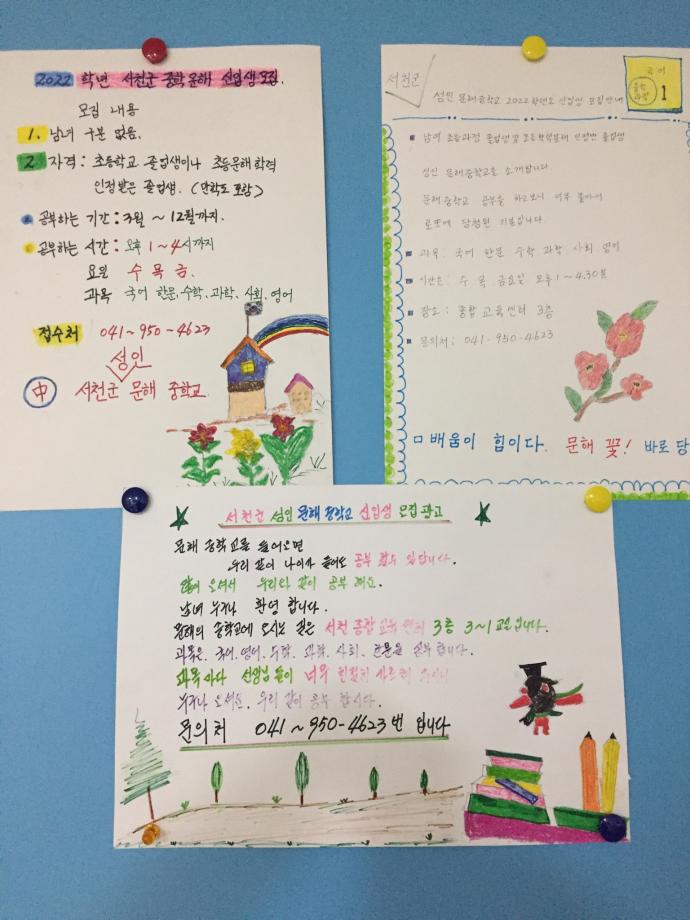 2022 학년 서천군 중학문해 신입생모집.
모집 내용
1. 남녀 구분 없음.
2 자격: 초등학교 졸업생이나 초등문해학력
인정받은 졸업생. (만학도 포함)
공부하는 기간: 3월 ~ 12월까지.
공부하는 시간: 오후 1~4시까지
요일 수 목 금.
과목 국어 한문, 수학, 과학, 사회, 영어
접수처 041~950~4623
성인
中 서천군 문해 중학교
서천군
성인 문해중학교 2022 학년도 신입생 모집안내
국어
중학과정 1
남여 초등과정 졸업생 및 초등학력
성인 문해중학교를 소개합니다.
문해중학교 공부를 하고보니 너무 좋아서
로또에 당첨된 기분입니다.
과목: 국어 한문 수학 과학 사회 영어
시간은: 수 목 금요일 오후 1~4.30분
장소: 종합 교육센터 3층
문의처: 041-950-4623
□ 배움이 힘이다. 문해 꽃! 바로 당
서천군 성인 문해 중학교 신입생 모집 광고
문해 중학교를 들어오면
우리 같이 나이가 들어도 공부 할수 있답니다.
많이 오셔서 우리와 같이 공부 해요.
남녀 누구나 환영 합니다.
문해의 중학교에 오시는 길은 서천 종합 교육 센터 3층 3~1 교실입니다.
과목은. 국어. 영어. 수학. 과학. 사회. 한문을 공부 합니다.
과목마다 선생님 들이 너무 친절히 가르쳐 주시니
누구나 오세요. 우리 같이 공부 합시다.
문의처 041~950-4623번 입니다